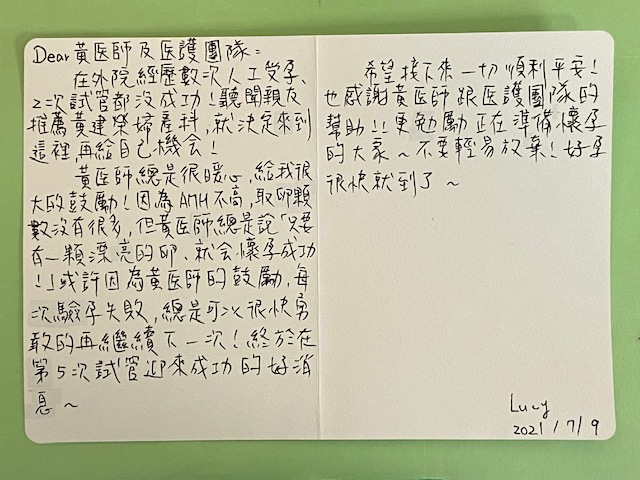 Dear 黃医師及医護團隊：
在外院經歷數次人工受孕、
2次試管都沒成功！聽聞親友
推薦黃建榮婦產科，就決定來到
這裡，再給自己機会！
黃医師總是很暖心，給我很
大的鼓勵！因為AMH不高，取卵顆
數沒有很多，但黃医師總是說「只要
有一顆漂亮的卵、就会懷孕成功
！」或許因為黃医師的鼓勵，每
次驗孕失敗，總是可以很快勇
敢的再繼續下一次！終於在
第5次試管迎來成功的好消
息～
希望接下來一切順利平安！
也感謝黃医師跟医護團隊的
幫助!! 更勉勵正在準備懷孕
的大家～不要輕易放棄！好孕
很快就到了～
Lucy
2021/7/9